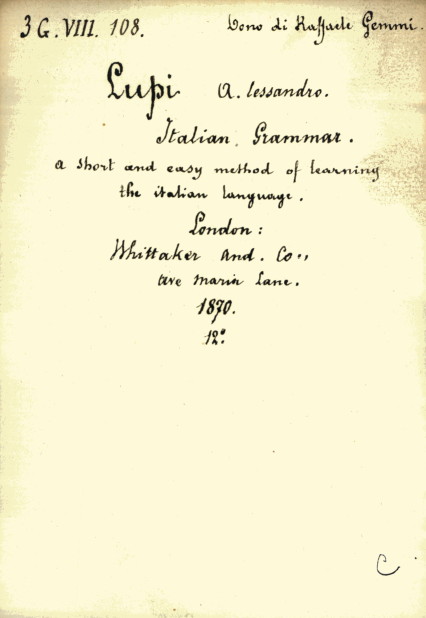 3 G. VIII. 108. Dono di Raffaele Gemmi.
Lupi A. lessandro.
Italian Grammar.
a short and easy method of learning
the italian language.
London:
Whittaker and. Co.,
ave maria lane.
1870.
12º
C